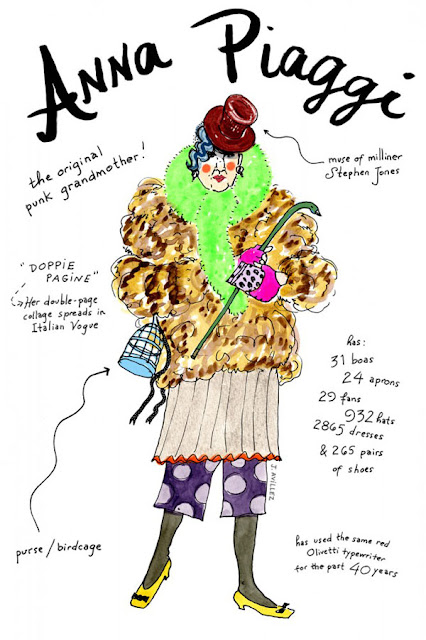 ANNA PIAGGI
the original
punk grandmother!
muse of milliner
Stephen Jones
"DOPPIE
PAGINE"
Her double-page
collage spreads in
Italian Vogue
has:
31 boas
24 aprons
29 fans
932 hats
2865 dresses
& 265 pairs
of shoes
J. AVILLEZ
purse/birdcage
has used the same red
Olivetti typewriter
for the past 40 years